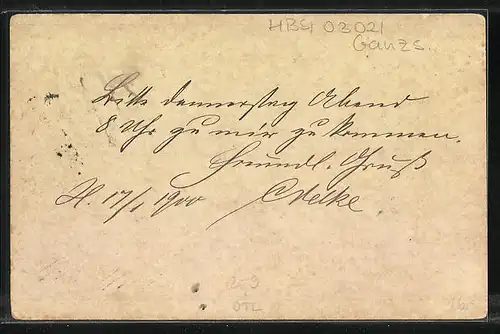 HBSt 03021
Ganzs.
Bitte Donnerstag Abend
8 Uhr zu mir zu kommen.
Freundl. Gruß
H. 17/1 1900